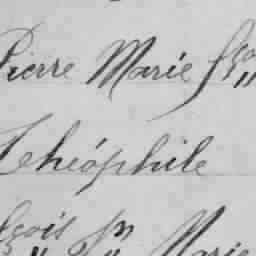 Pierre Marie fço
Théophile
çois Jn Marie